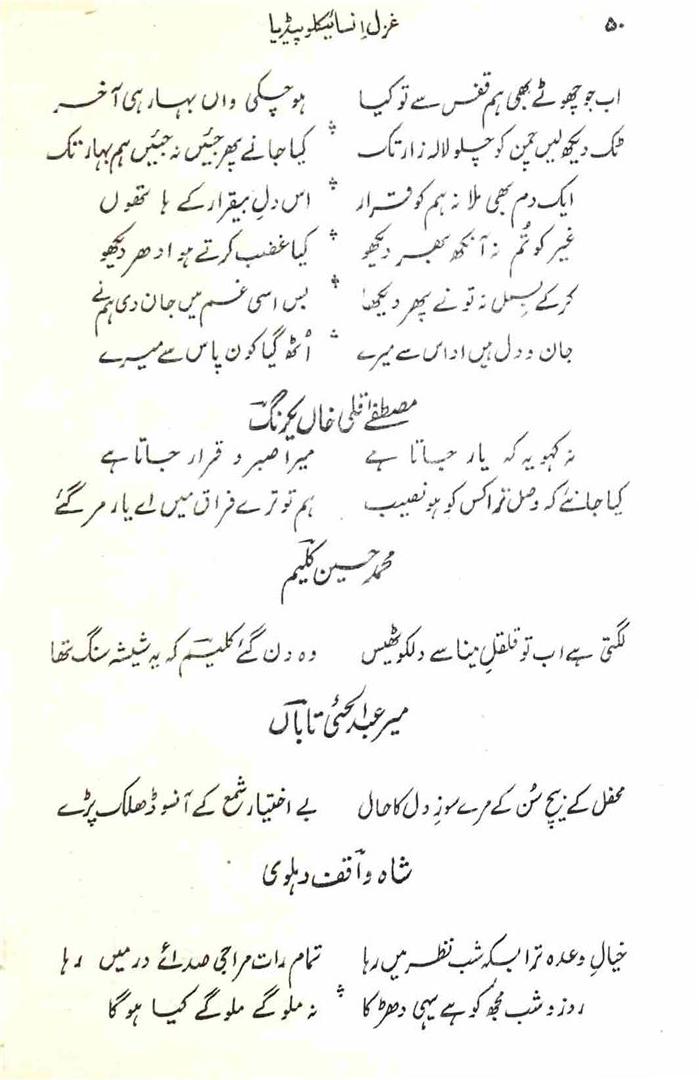 ۵۰ غزل اِنسائیکلوپیڈیا
اب جو چھوٹے بھی ہم قفس سے تو کیا ہو چکی واں بہار ہی آخر
ٹک دیکھ لیں چمن کو چلو لالہ زار تک کیا جانے پھر جئیں نہ جئیں ہم بہار تک
ایک دم بھی ملا نہ ہم کو قرار اس دلِ بیقرار کے ہاتھوں
غیر کو تُم نہ آنکھ بھر دیکھو کیا غضب کرتے ہو ادھر دیکھو
کرکے بسمل نہ تو نے پھر دیکھا بس اسی غم میں جان دی ہم نے
جان و دل ہیں اداس سے میرے اُٹھ گیا کون پاس سے میرے
مصطفےٰ قلی خاں یکرنگ
نہ کہو یہ کہ یار جاتا ہے میرا صبر و قرار جاتا ہے
کیا جانئے کہ وصل ترا کس کو ہو نصیب ہم تو ترے فراق میں اے یار مر گئے
محمد حسین کلیم
لگتی ہے اب تو قلقلِ مینا سے دلکو ٹھیس وہ دن گئے کلیم کہ یہ شیشہ سنگ تھا
میر عبدالحئی تاباں
محفل کے بیچ سُن کے مرے سوزِ دل کا حال بے اختیار شمع کے آنسو ڈھلک پڑے
شاہ واقف دہلوی
خیالِ وعدہ ترا بسکہ شب نظر میں رہا تمام رات مرا جی صدائے در میں رہا
روز و شب مجھ کو ہے یہی دھڑکا نہ ملو گے ملو گے کیا ہوگا